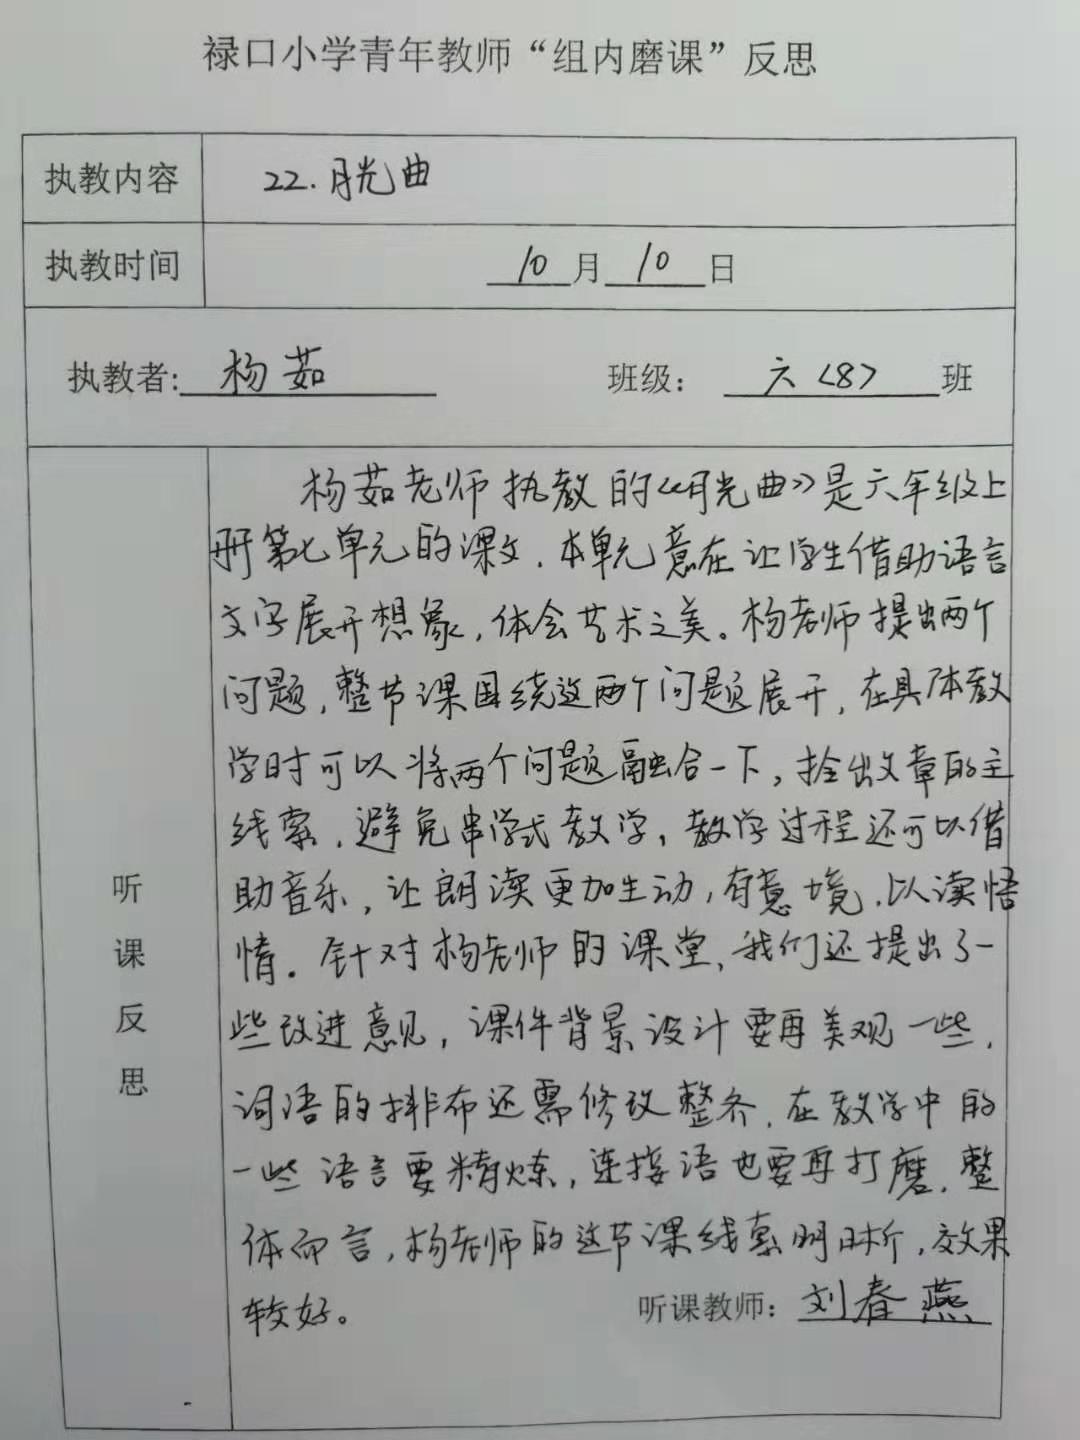 禄口小学青年教师“组内磨课”反思
执教内容 22.月光曲
执教时间 10月10日
执教者: 杨茹 班级： 六（8） 班
杨茹老师执教的《月光曲》是六年级上
册第七单元的课文，本单元意在让学生借助语言
文字展开想象，体会艺术之美。杨老师提出两个
问题，整节课围绕这两个问题展开，在具体教
学时可以将两个问题融合一下，拴出文章的主
线索，避免串学式教学，教学过程还可以借
助音乐，让朗读更加生动，有意境，以读悟
情。针对杨老师的课堂，我们还提出了一
些改进意见，课件背景设计要再美观一些，
词语的排布还需修改整齐，在教学中的
一些语言要精炼，连接语也要再打磨，整
体而言，杨老师的这节课线索明晰，效果
较好。
听课反思
听课教师：刘春燕